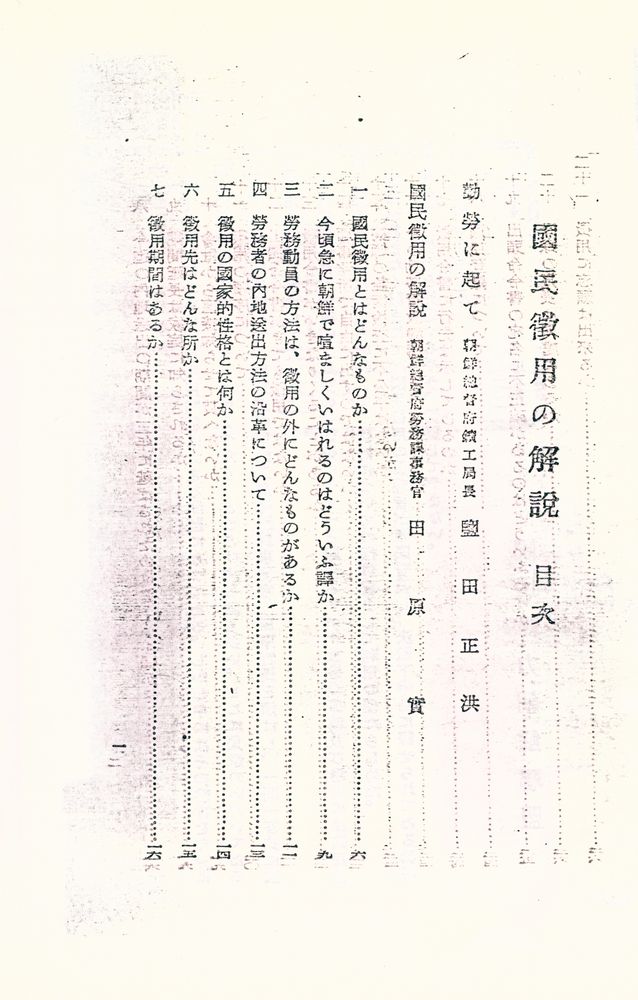 國民徵用の解說 目次
勤勞に起て 朝鮮總督府鑛工局長 鹽田正洪
國民徵用の解說 朝鮮總督府勞務課事務官 田原實
一 國民徵用とはどんなものか 六
二 今頃急に朝鮮で喧ましくいはれるのはどういふ譯か 九
三 勞務動員の方法は、徵用の外にどんなものがあるか 一一
四 勞務者の內地送出方法の沿革について 一三
五 徵用の國家的性格とは何か 一四
六 徵用先はどんな所か 一五
七 徵用期間はあるか 一六
一